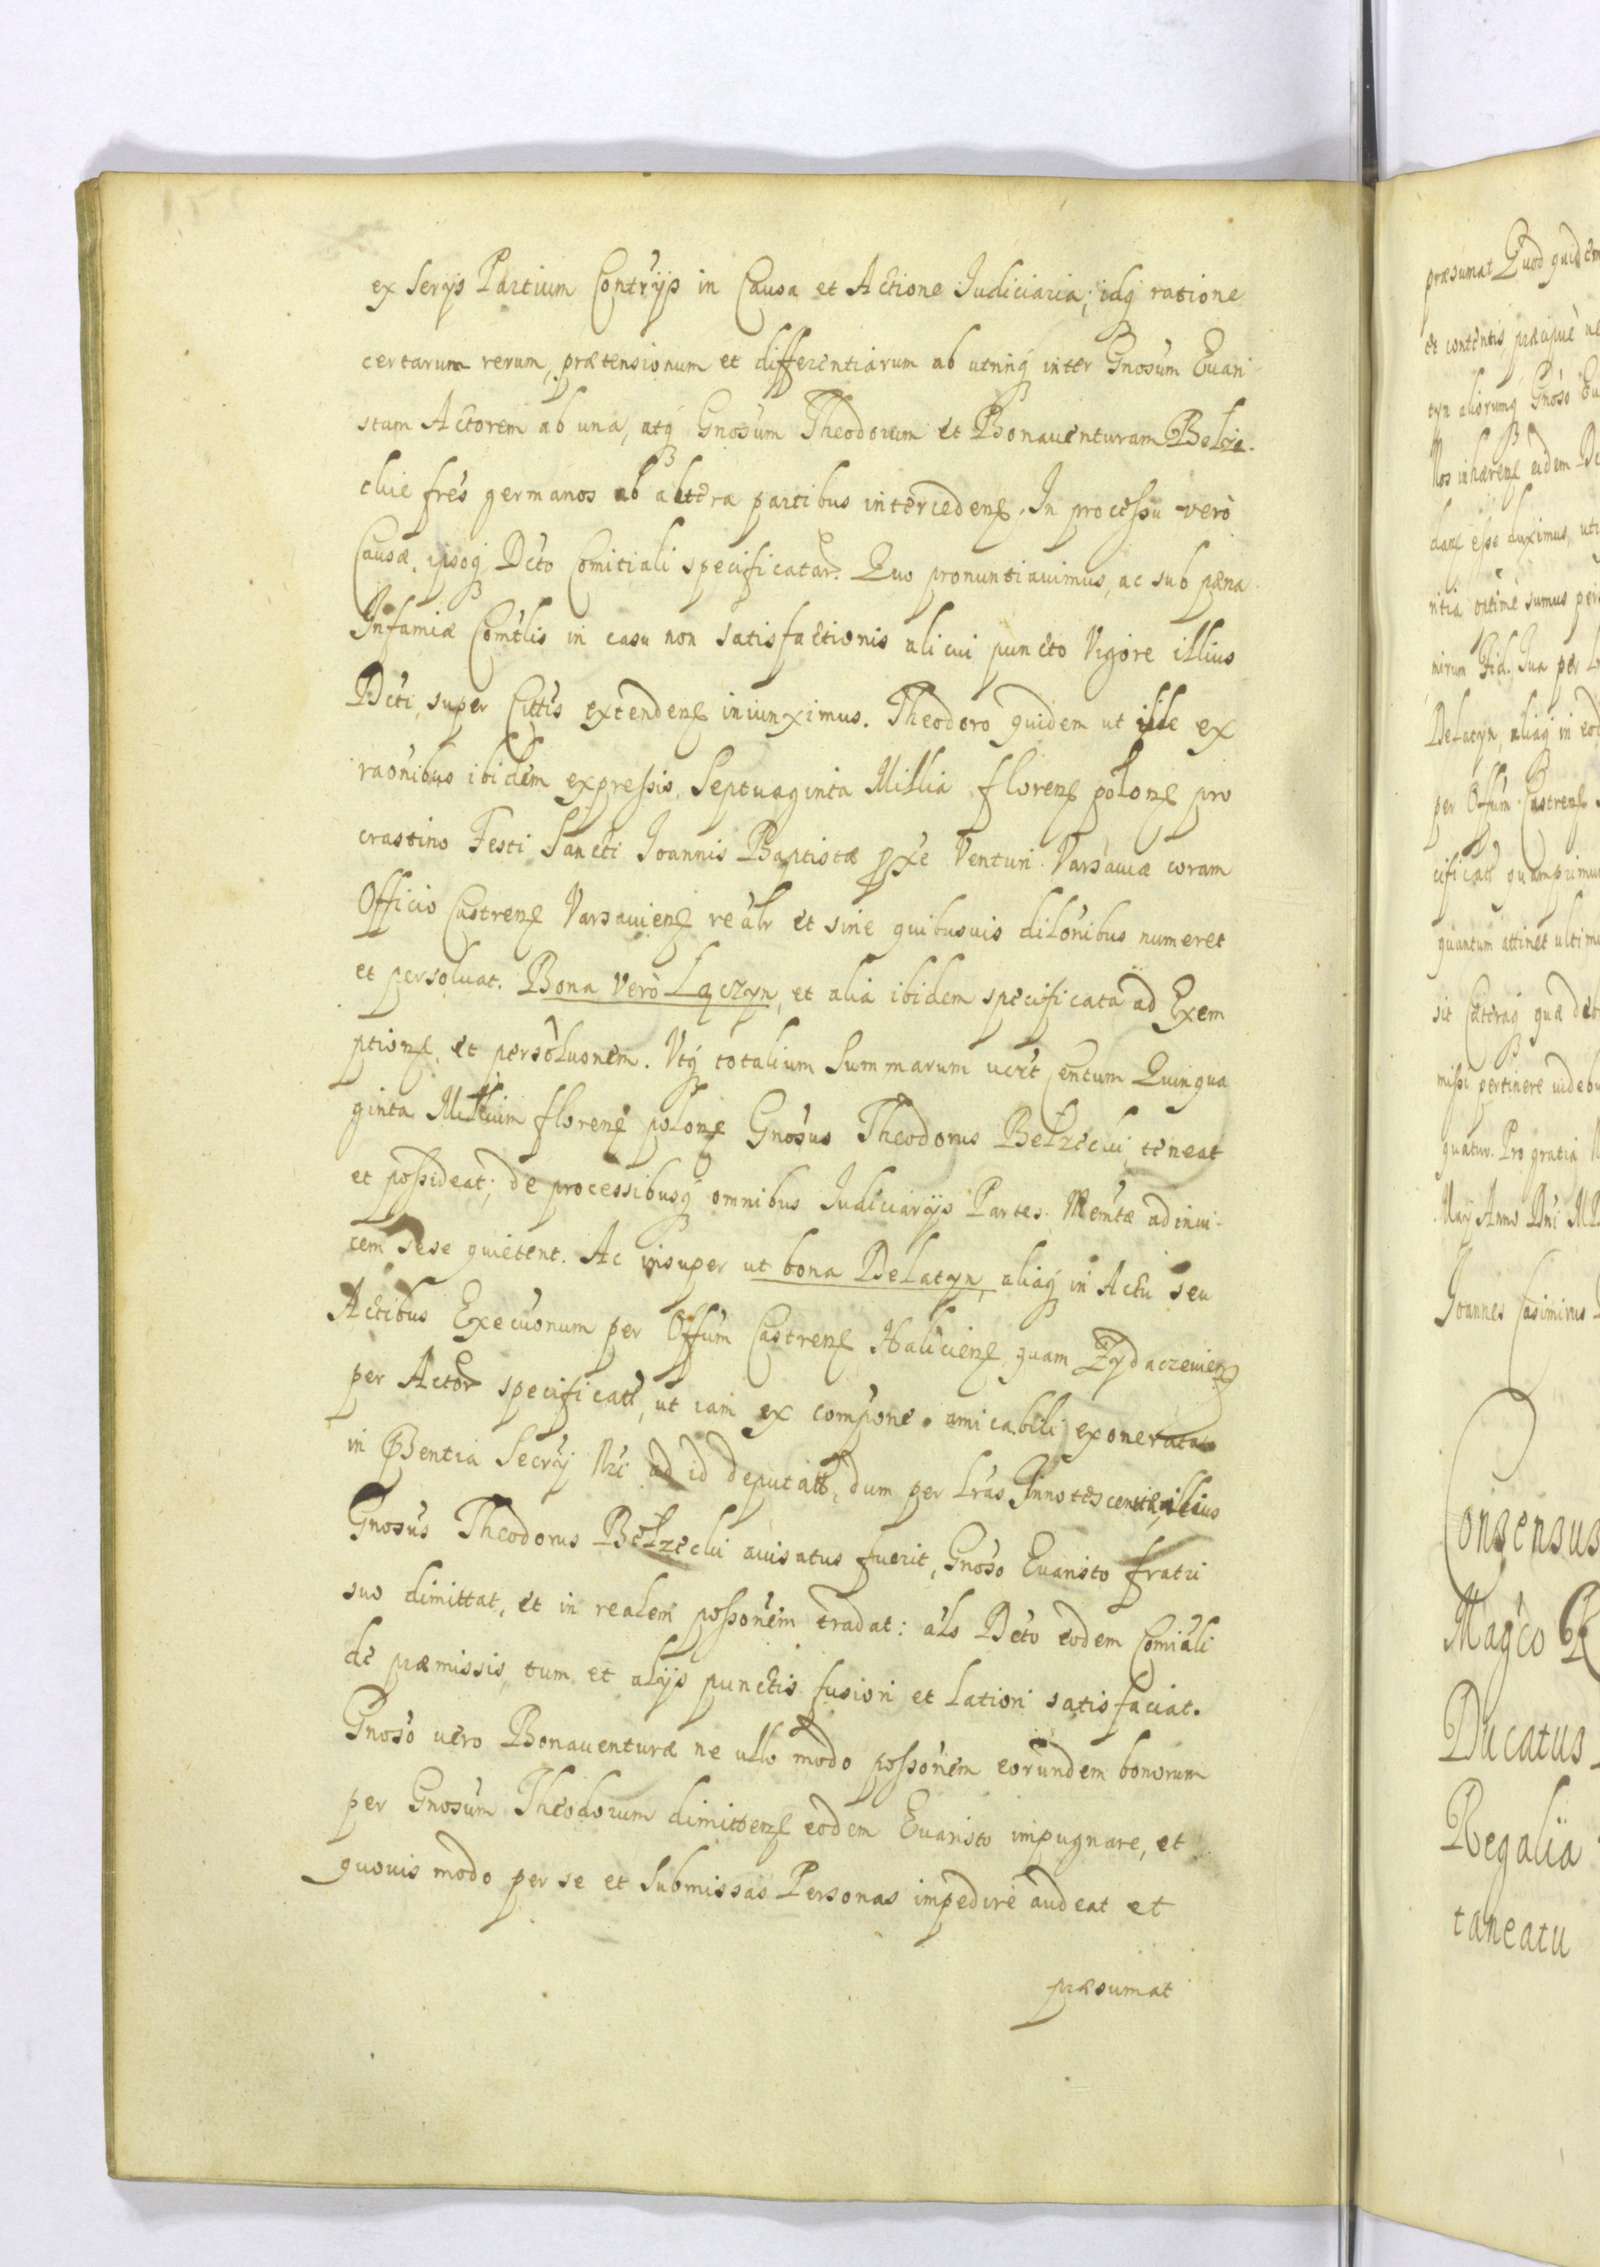 ex serijs Partium Contrijs in Causa et Actione Iudiciaria, idq ratione
certarum rerum, prætensionum et differentiarum ab utrinq inter Gnosum Euari
stum Actorem ab una, atq Gnosum Theodorum et Bonauenturam Belze-
ckie fres germanos ab altera partibus intercedenc. In processu verò
Causæ, ipsoq Dcto Comitiali specificatar. Quo pronuntiauimus, ac sub pæna
Infamiæ Comtlis in casu non satisfactionis alicui puncto Vigore illius
Dcti, super Cittis extendenc iniunximus. Theodoro quidem ut ille ex
raonibus ibidem expressis, Septuaginta Millia florenc polonc pro
crastino Festi Sancti Ioannis Baptistæ pxe Venturi Varsauiæ coram
Officio Castrenc Varsauienc realr et sine quibusuis dilonibus numeret
et persoluat. Bona verò Łączyn, et alia ibidem specificata ad Exem
ptionc, et persoluonem. Vtq totalium Summarum vert Centum Quinqua
ginta Millium florenc polonc Gnosus Theodorus Belzecki teneat
et possideat; de processibusq omnibus Iudiciarijs Partes Memtæ adinui-
cem sese quietent. Ac insuper ut bona Delatyn, aliaq in Actu seu
Actibus Execuonum per Offum Castrenc Halicienc quam Zydaczeuienc
per Actor specificatt, ut iam ex compone amicabili exonerata
in Pæntia Secrij Nri ad id deputatt, dum per Lras Innotescentiæ illius
Gnosus Theodorus Belzecki auisatus fuerit, Gnoso Euaristo fratri
suo dimittat, et in realem possonem tradat: als Dcto eodem Comiali
de præmissis, tum et alijs punctis fusiori et latiori satisfaciat.
Gnoso vero Bonauenturæ ne ullo modo possonem eorundem bonorum
per Gnosum Theodorum dimittenc eodem Euaristo impugnare, et
quouis modo per se et submissas Personas impedire audeat et
præsumat
præsumat Quod quidem
et contentis, præcipuè
tyn aliorumq Gnoso
Nos inhærenc eidem
danc esse duximus, uti
Delatyn, aliaq in eod
per Offum Castrenc
cificatt quamprimum
quantum attinet ultim
sit Cæteraq quæ de
missi pertinere uideb
quatur. Pro gratia
Maij Anno Dni
Ioannes Casimirus
Consensus
Magco
Ducatus
Regalia
taneatu